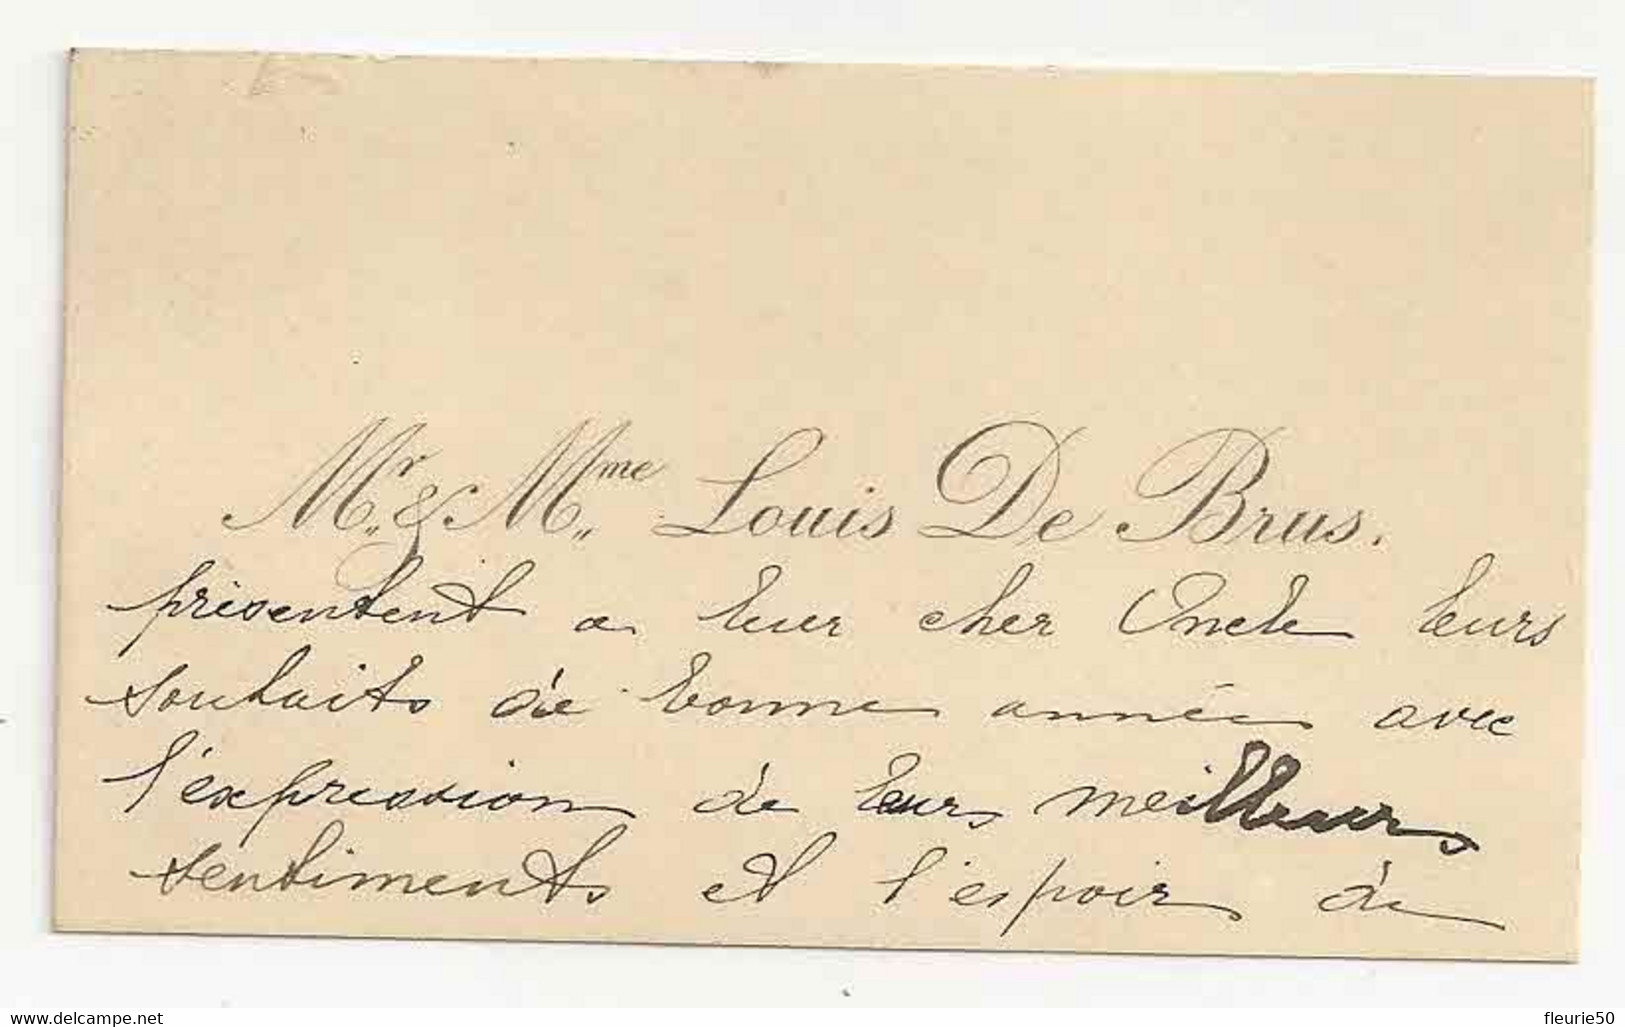 Mr. & Mme. Louis De Brus.
présentent a leur cher Oncle leurs
souhaits de bonne année avec
l'expression de leurs meilleurs
sentiments et l'espoir de
www.delcampe.net
fleurie50